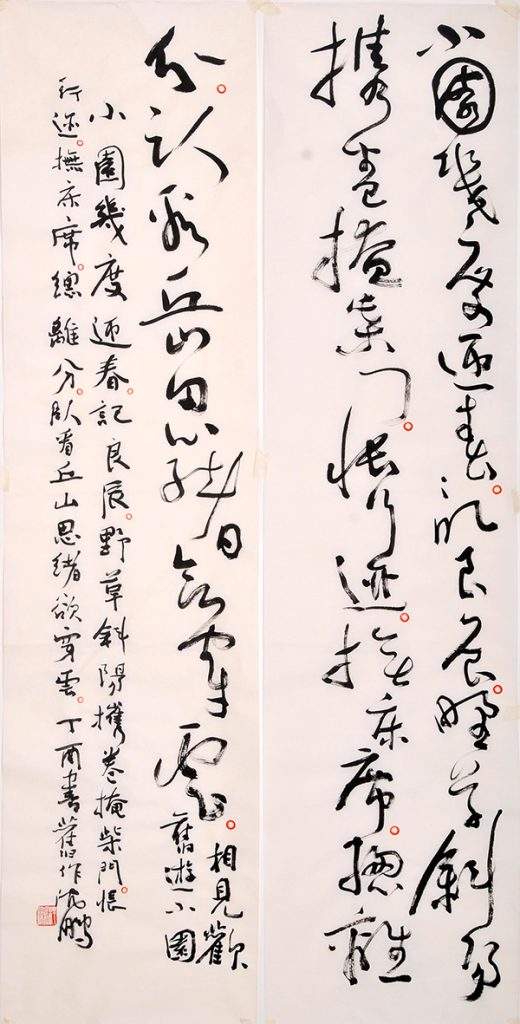 小園幾度迎春。記良辰。野草斜陽
携卷掩柴門。悵行迹。撫床席。總離
分。臥看丘山思緒欲穿雲。
相見歡
舊遊小園
小園幾度迎春。記良辰。野草斜陽攜卷掩柴門。悵
行迹。撫床席。總離分。臥看丘山思緒欲穿雲。丁酉書舊作沈鵬